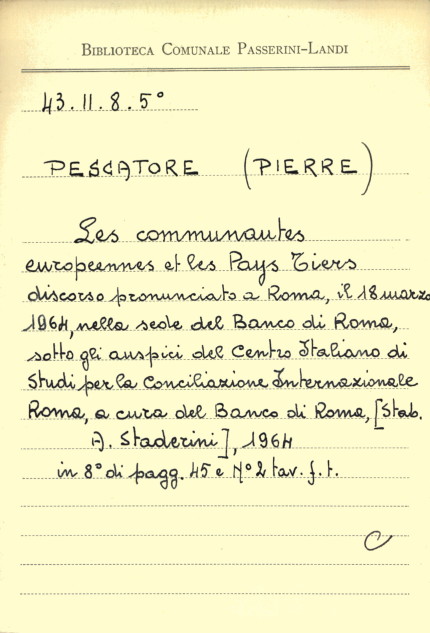 BIBLIOTECA COMUNALE PASSERINI-LANDI
43.11.8.5°
PESCATORE (PIERRE)
Les communautes
europeennes et les Pays Tiers
discorso pronunciato a Roma, il 18 marzo
1964, nella sede del Banco di Roma,
sotto gli auspici del Centro Italiano di
Studi per la Conciliazione Internazionale
Roma, a cura del Banco di Roma, [Stab.
A. Staderini], 1964
in 8° di pagg. 45 e N° 2 tav. f. t.
C